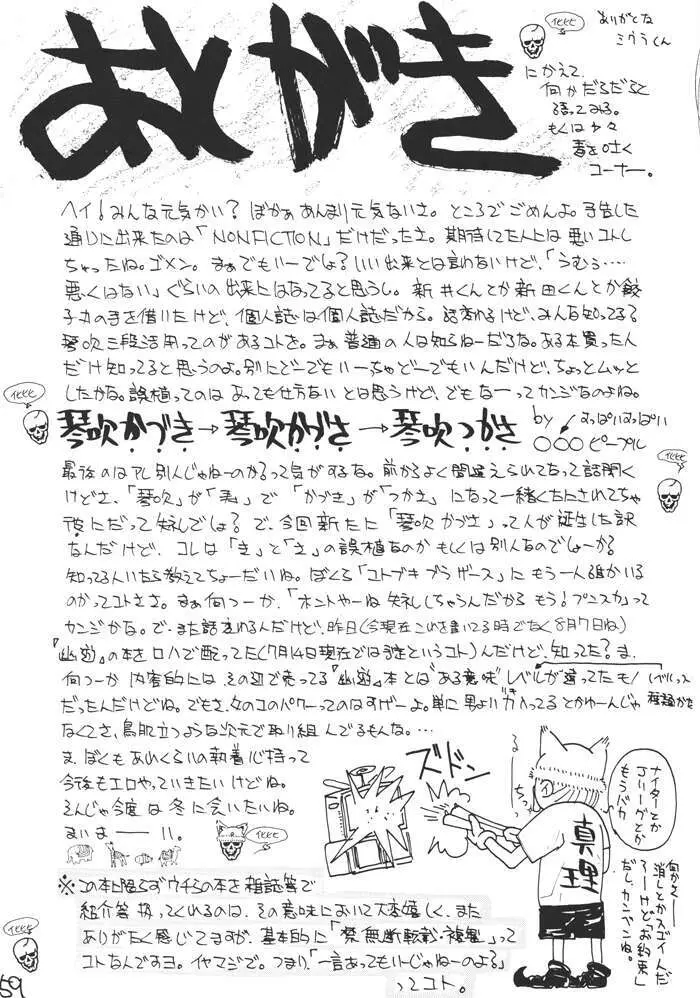 あとがき
ケケケ
ありがとな
ミウラくん
にかえて、
何かだらだらと
語ってみる。
もしくは少々
毒を吐く
コーナー。
ヘイ!みんな元気かい?ぼかぁあんまり元気ないさ。ところでごめんよ。予告した
通りに出来たのは「NONFICTION」だけだったさ。期待してた人には悪いコトし
ちゃったね。ゴメン。まぁでもいーでしょ?いい出来とは言わないけど、「うむぅ…
悪くはない」ぐらいの出来にはなってると思うし。新井くんとか新田くんとか餃
子の手を借りたけど、個人誌は個人誌だから。話変わるけど、みんな知ってる?
琴吹三段活用ってのがあるコトを。まぁ普通の人は知らねーだろな。ある本買った人
だけ知ってると思うのよ。別にどーでもいーちゃどーでもいんだけど、ちょっとムッと
したかな。誤植ってのはあっても仕方ないとは思うけど、でもなーってカンジなのよね。
ケケケ
琴吹かづき→琴吹かづさ→琴吹つかさ
by すっぱいすっぱい
○○○ピープル
ケケケ
最後のはアレ別人じゃねーのか?って気がするな。前からよく間違えられてなって話聞く
けどさ、「琴吹」が「
」で「かづき」が「つかさ」になって一緒くたにされてちゃ
彼にだって失礼でしょ?で、今回新たに「琴吹かづさ」って人が誕生した訳
なんだけど、コレは「き」と「さ」の誤植なのかもしくは別人なのでしょーか?
知ってる人いたら教えてちょーだいね。ぼくら「コトブキブラザーズ」にもう一人誰かいる
のかってコトさ。まぁ何つーか、「ホントやーね失礼しちゃうんだからもう!プンスカ」って
カンジかな。で、また話変わるんだけど、昨日(今現在これを書いてる時でなく8月7日ね)
『幽遊』の本をロハで配ってた(7月14日現在では予定というコト)んだけど、知ってた?ま、
何つーか内容的にはその辺で売ってる『幽遊』本とは“ある意味”レベルが違ってたモノ
レベルって
だったんだけどね。でもさ、女のコのパワーってのはすげーよ。単に男より力入ってるとかゆーんじゃ
なくてさ、鳥肌立つような次元で取り組んでるもんな。…
ま、ぼくもあれくらいの執着心持って
今後もエロやっていきたいけどね。
そんじゃ今度は冬に会いたいね。
まいまーーい。
ケケケ
ズドン
ナイターとか
Jリーグとか
もうバカ
真理
※この本に限らずウチらの本を雑誌等で
紹介等扱ってくれるのは、その意味において大変嬉しく、また
ありがたく感じてますが、基本的に「禁無断転載・複製」って
コトなんですヨ。イヤマジで。つまり、「一言あってもいーじゃねーのよぉ?」
ってコト。
ケケケ
59